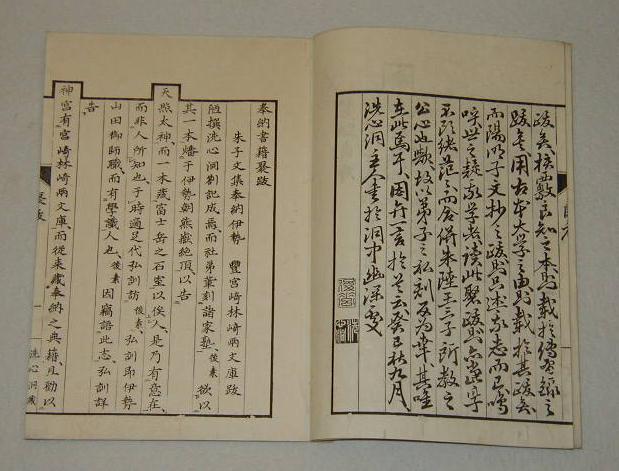 跋矣用古本大學之由則載於其跋矣
而陽明子文抄之跋則只述家志而已嗚
呼世之疑我學者讀此聚跋則
朱陸王三子所教之
公心也歟故以弟子之私刻反為幸其唯
在此焉乎因弁言於首云癸巳秋九月
洗心洞主人書於洞中幽深處
奉納書籍聚跋
朱子文集奉納伊勢 豐宮崎林崎兩文庫跋
陋撰洗心洞劄記成焉而社弟輩刻諸家塾後素欲以
其一本燔于伊勢朝熊嶽絕頂以告
天照太神而一本藏富士岳之石室以俟人是乃有意在
而非人所知也于時適足代弘訓訪後素弘訓即伊勢
山田御師職而有學識人也後素因竊語此志弘訓詳
告
神宮有宮崎林崎兩文庫而從來藏奉納之典籍且勸以
聚跋 洗心洞藏